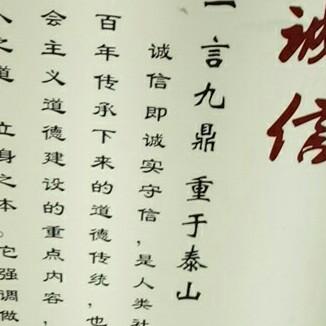 诚信
一言九鼎 重于泰山
诚信即诚实守信，是人类社
百年传承下来的道德传统，也
会主义道德建设的重点内容，
人之道 立身之本。它强调做